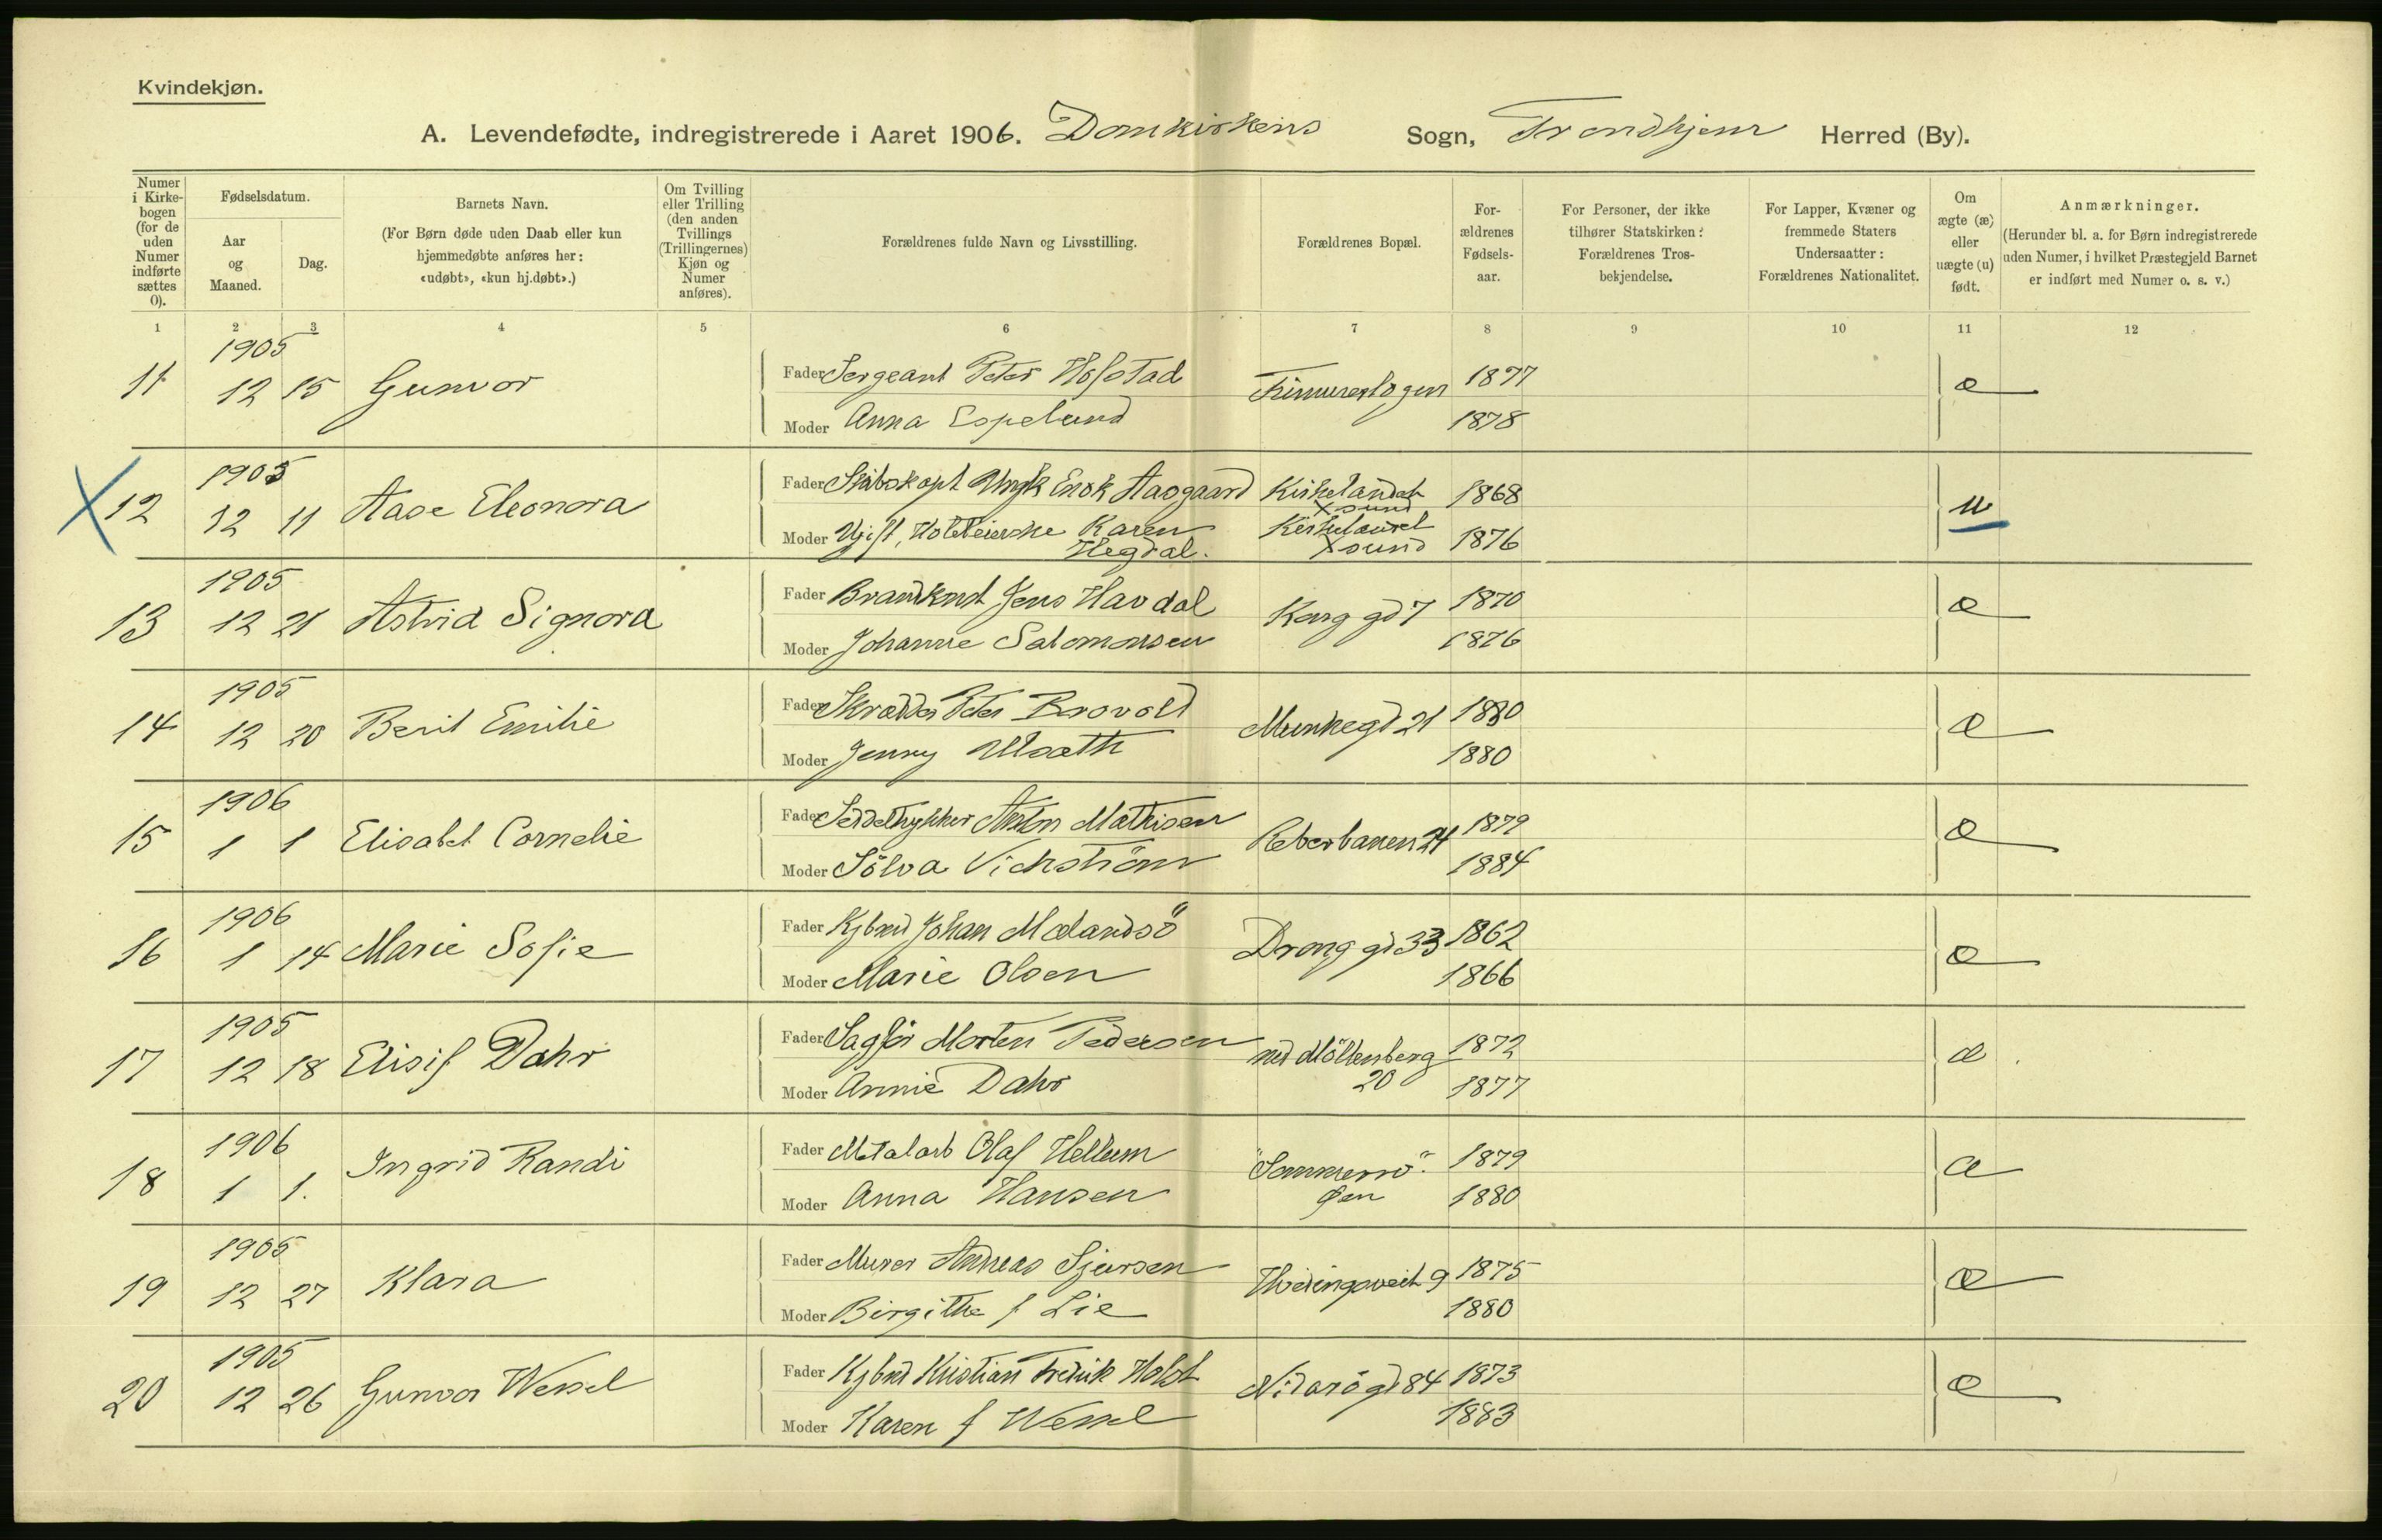 Kvindekjøn.
A. Levendefødte, indregistrerede i Aaret 1906. Domkirkens Sogn, Trondhjem Herred (By).
Numer i Kirke-bogen (for de uden Numer indførte sættes 0).
Fødselsdatum.
Aar og Maaned.
Dag.
Barnets Navn.
(For Børn døde uden Daab eller kun hjemmedøbte anføres her: «udøbt», «kun hj.døbt».)
Om Tvilling eller Trilling (den anden Tvillings (Trillingernes) Kjøn og Numer anføres).
Forældrenes fulde Navn og Livsstilling.
Forældrenes Bopæl.
For-ældrenes Fødsels-aar.
For Personer, der ikke tilhører Statskirken: Forældrenes Tros-bekjendelse.
For Lapper, Kvæner og fremmede Staters Undersaatter: Forældrenes Nationalitet.
Om ægte (æ) eller uægte (u) født.
Anmærkninger.
(Herunder bl. a. for Børn indregistrerede uden Numer, i hvilket Præstegjeld Barnet er indført med Numer o. s. v.)
1 2 3 4 5 6 7 8 9 10 11 12
1905
11 12 15 Gunvor
Fader Sergeant Peter Hofstad 1877 æ
Moder Anna Espelund 1878
1905
X 12 12 11 Aase Eleonora
Fader Skibskapt Ungk Enok Aasgaard Kirkelandet Xsund 1868 u
Moder Ugift, Hoteleierske Karen Hegdal. Kirkelandet Xsund 1876
1905
13 12 21 Astrid Signora
Fader Brandknst Jens Havdal Kong gd 7 1870 æ
Moder Johanne Salomonsen 1876
1905
14 12 20 Berit Emilie
Fader Skrædder Peter Brovold Munkegd 21 1880 æ
Moder Jenny
1880
1906
15 1 1 Elisabet Cornelie
Fader Anton Mathisen Reberbanen 24 1879 æ
Moder Sölva Vickström 1884
1906
16 1 14 Marie Sofie
Fader Kjbmd Johan Mælandsö Drong gd 33 1862 æ
Moder Marie Olsen 1866
1905
17 12 18 Elisif Dahr
Fader Sagför Morten Pedersen ned Möllenberg 20 1872 æ
Moder Annie Dahr 1877
1906
18 1 1. Ingrid Randi
Fader Metalarb Olaf Hellem "Sommerro". Øen 1879 æ
Moder Anna Hansen 1880
1905
19 12 27 Klara
Fader Murer Andreas Sjursen Hvedingsveit 9 1875 æ
Moder Birgitha f Lie 1880
1905
20 12 26 Gunvor Wessel
Fader Kjbmd Kristian Fredrik Holst Nidarö gd 84 1873 æ
Moder Karen f Wessel 1883